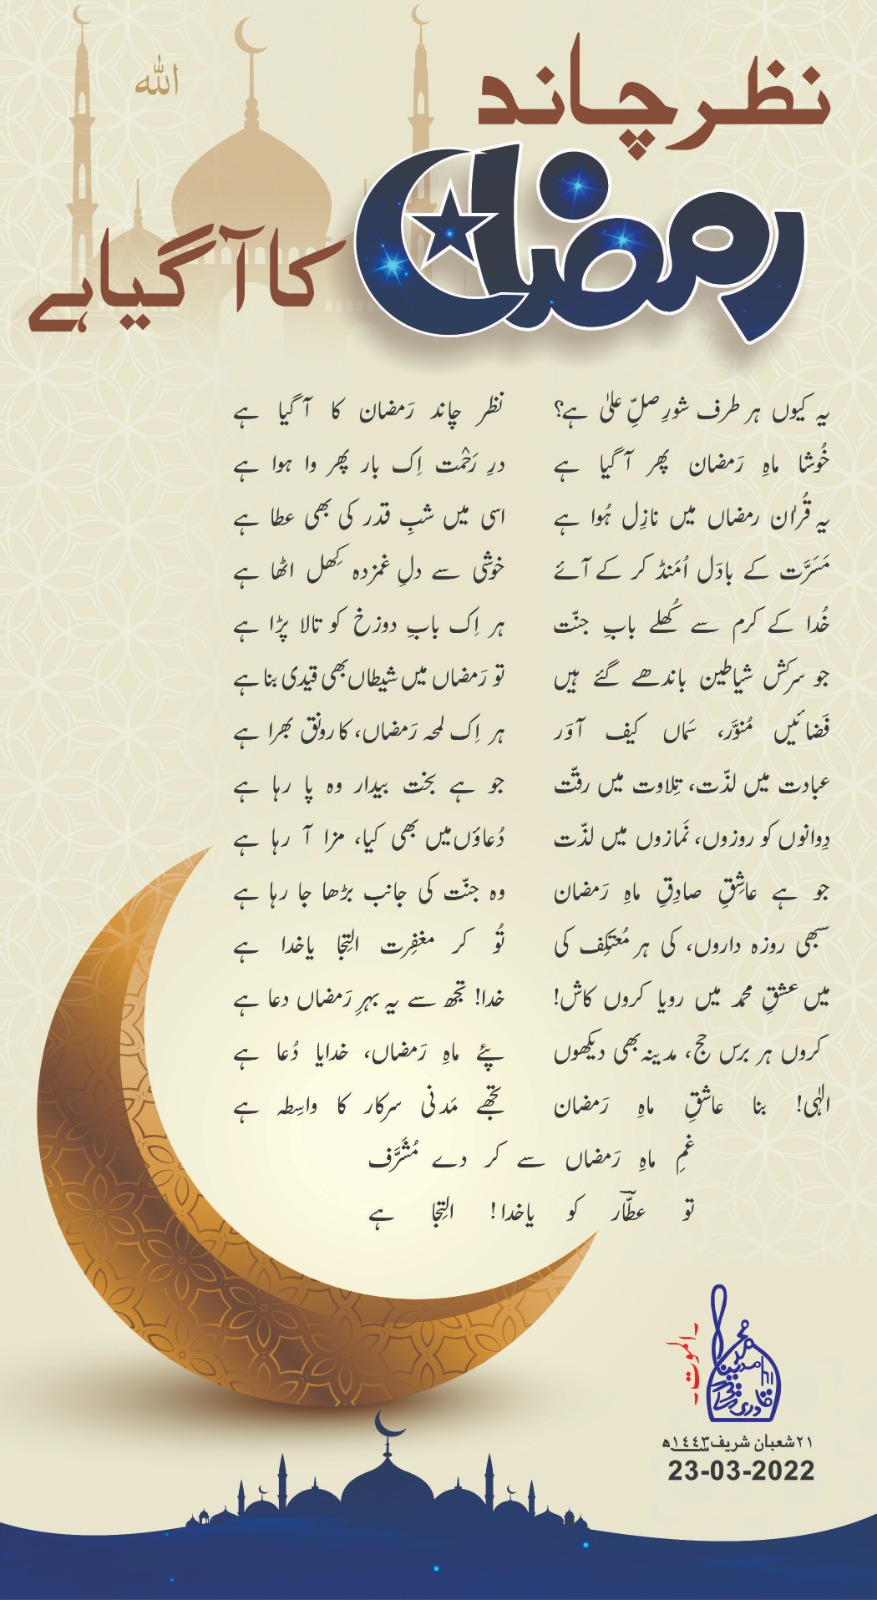 اللہ
نظر چاند
رمضان
کا آگیا ہے
یہ کیوں ہر طرف شورِ صلِّ علیٰ ہے؟ نظر چاند رَمضان کا آگیا ہے
خُوشا ماہِ رَمضان پھر آگیا ہے درِ رَحْمت اِک بار پھر وا ہوا ہے
یہ قُراٰن رمضاں میں نازِل ہُوا ہے اسی میں شبِ قدر کی بھی عطا ہے
مَسَرَّت کے بادَل اُمَنڈ کر کے آئے خوشی سے دلِ غمزدہ کِھل اٹھا ہے
خُدا کے کرم سے کُھلے بابِ جنّت ہر اِک بابِ دوزخ کو تالا پڑا ہے
جو سرکش شیاطین باندھے گئے ہیں تو رَمضاں میں شیطاں بھی قیدی بنا ہے
فَضائیں مُنوَّر، سَماں کیف آوَر ہر اِک لمحہ رَمضاں، کا رونق بھرا ہے
عبادت میں لذّت، تِلاوت میں رقّت جو ہے بخت بیدار وہ پا رہا ہے
دِوانوں کو روزوں، نَمازوں میں لذّت دُعاؤں میں بھی کیا، مزا آ رہا ہے
جو ہے عاشِقِ صادِقِ ماہِ رَمضان وہ جنّت کی جانب بڑھا جا رہا ہے
سبھی روزہ داروں، کی ہر مُعتکِف کی تُو کر مغفِرت التِجا یاخدا ہے
میں عشقِ محمد میں رویا کروں کاش! خدا! تجھ سے یہ بہرِ رَمضاں دعا ہے
کروں ہر برس حج، مدینہ بھی دیکھوں پئے ماہِ رَمضاں، خدایا دُعا ہے
الٰہی! بنا عاشقِ ماہِ رَمضان تجھے مَدنی سرکار کا واسِطہ ہے
غمِ ماہِ رَمضاں سے کر دے مُشَرَّف
تو عطّاؔر کو یاخدا! التِجا ہے
الموت
۲۱ شعبان شریف ۱٤٤۳ھ
23-03-2022